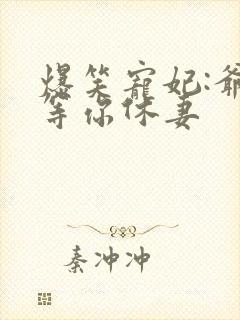 爆笑寵妃:爺
等你休妻
秦冲冲